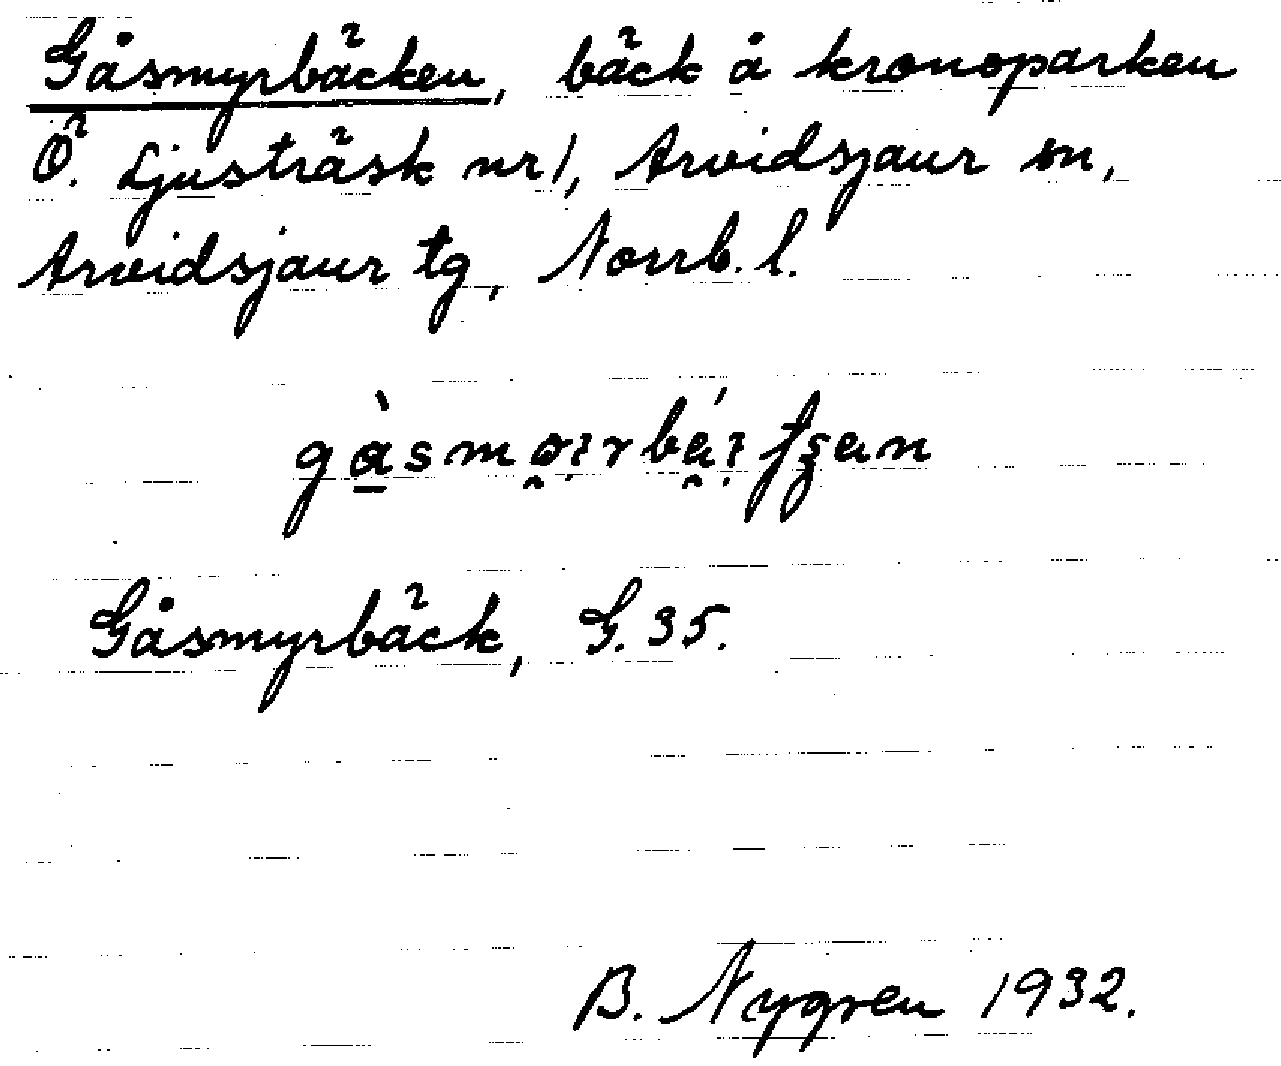 Gåsmyrbäcken, bäck å kronoparken
Ö. Ljusträsk nr 1, Arvidsjaur sn,
Arvidsjaur tg, Norrb. l.
Gåsmyrbäck, G. 35.
B. Nygren 1932.